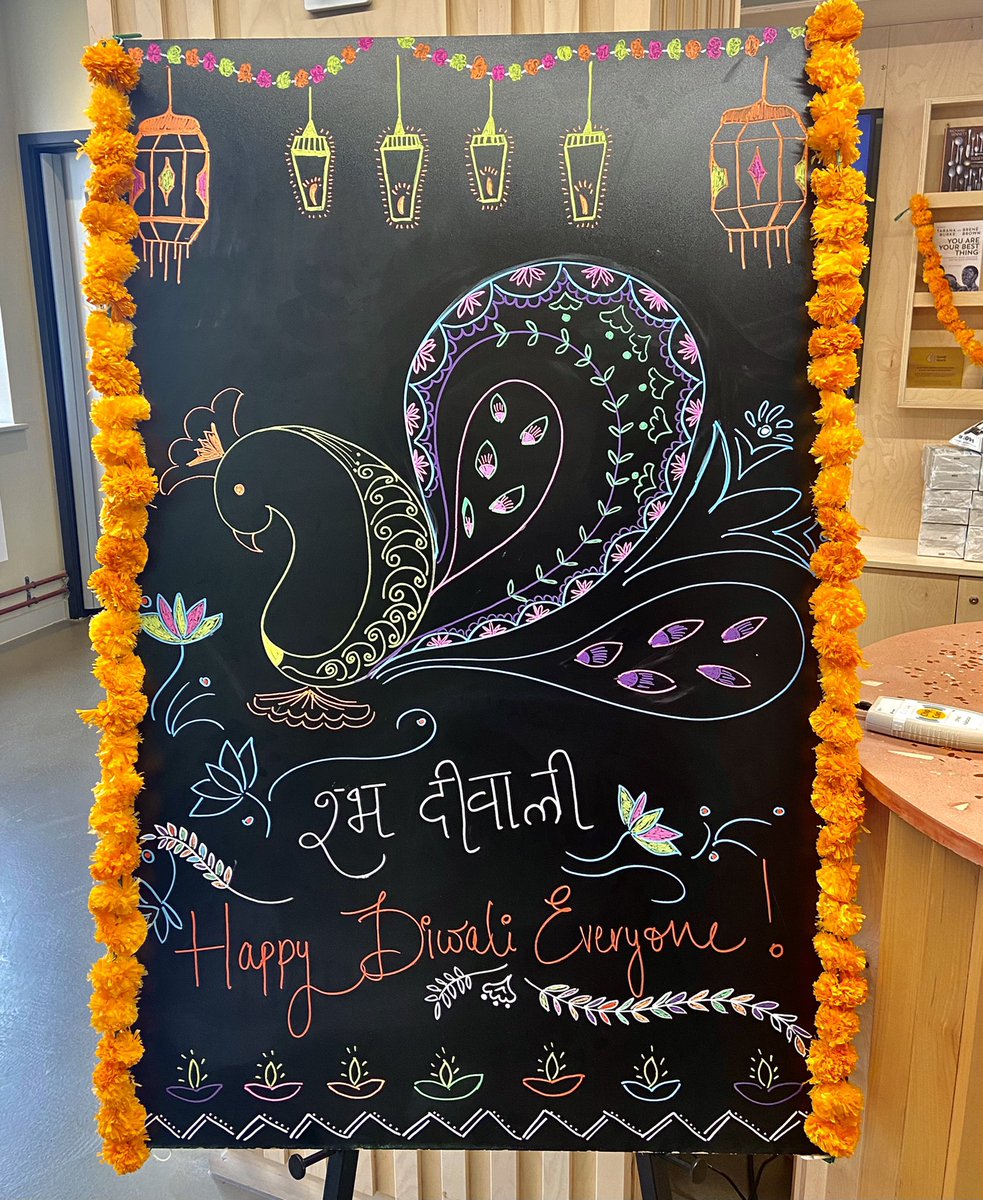 शुभ दीवाली
Happy Diwali Everyone!
TARANA BRENÉ
BURKE BROWN
YOU ARE
YOUR BEST
THING